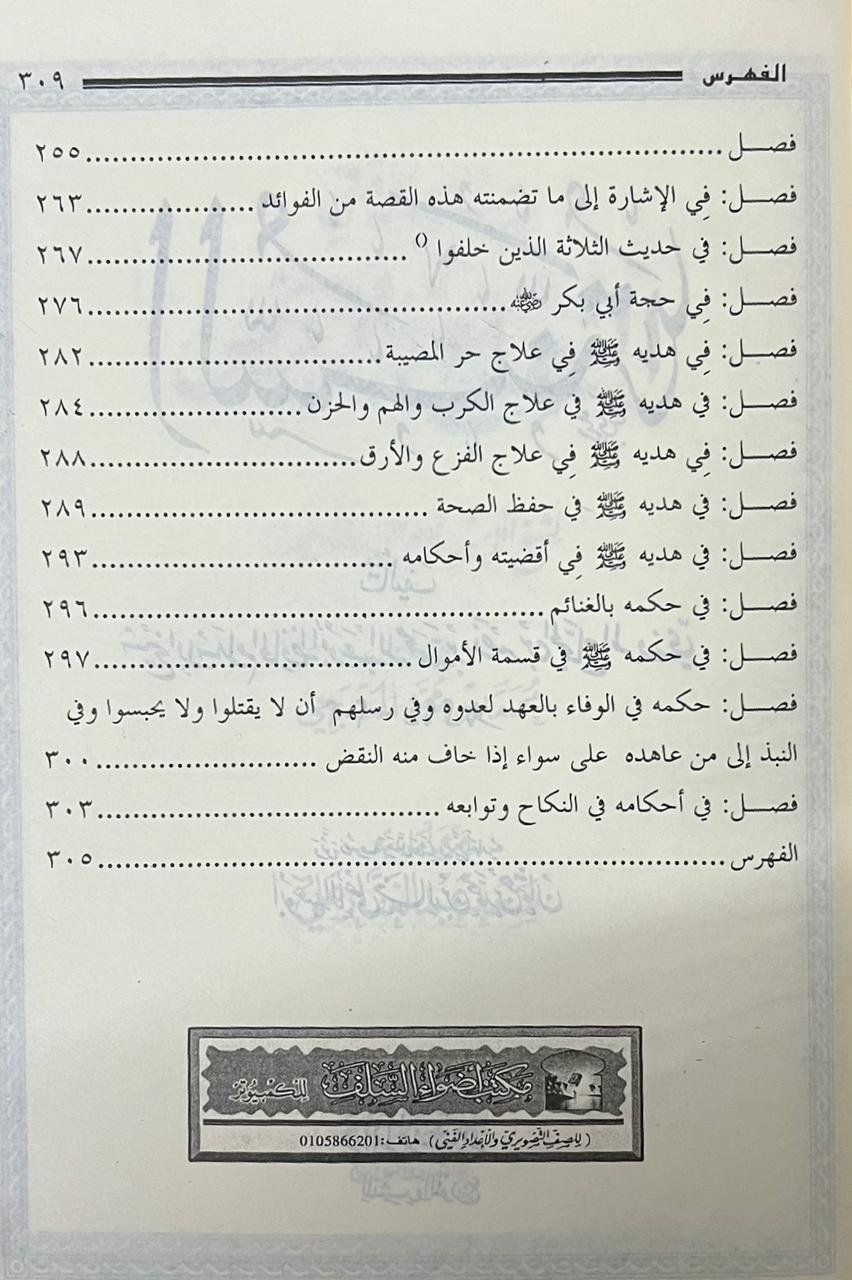 الفهرس ٣٠٩
فصل ٢٥٥
فصل: فِي الإشارة إلى ما تضمنته هذه القصة من الفوائد ٢٦٣
فصل: في حديث الثلاثة الذين خلفوا () ٢٦٧
فصل: فِي حجة أبي بكر رضي الله عنه ٢٧٦
فصل: فِي هديه ﷺ فِي علاج حر المصيبة ٢٨٢
فصل: في هديه ﷺ في علاج الكرب والهم والحزن ٢٨٤
فصل: فِي هديه ﷺ فِي علاج الفزع والأرق ٢٨٨
فصل: في هديه ﷺ في حفظ الصحة ٢٨٩
فصل: في هديه ﷺ فِي أقضيته وأحكامه ٢٩٣
فصل: في حكمه بالغنائم ٢٩٦
فصل: في حكمه ﷺ في قسمة الأموال ٢٩٧
فصل: حكمه في الوفاء بالعهد لعدوه وفي رسلهم أن لا يقتلوا ولا يحبسوا وفي
النبذ إلى من عاهده على سواء إذا خاف منه النقض ٣٠٠
فصل: في أحكامه في النكاح وتوابعه ٣٠٣
الفهرس ٣٠٥
مكتب أضواء السلف للكمبيوتر
(للصف التصويري والإعداد الفني) هاتف: 0105866201